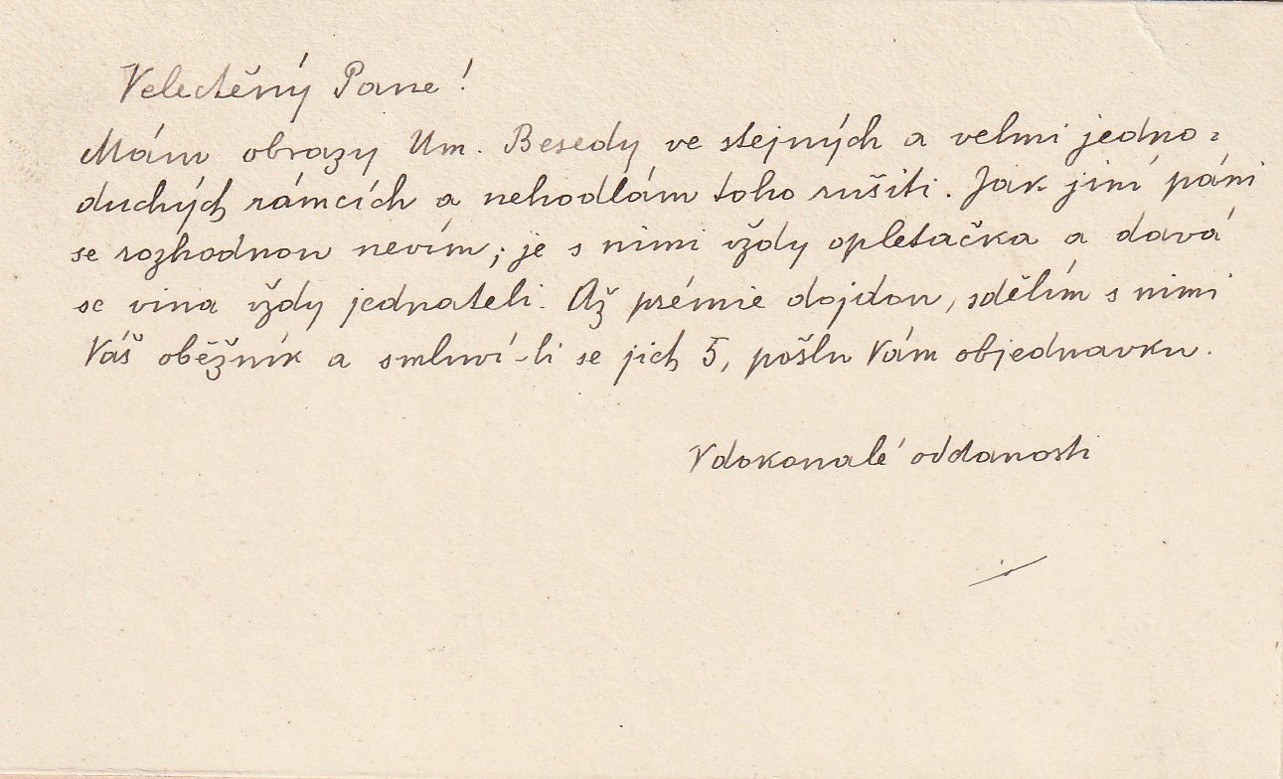 Velectěný Pane!
Mám obrazy Um. Besedy ve stejných a velmi jedno=
duchých rámcích a nehodlám toho rušiti. Jak jiní páni
se rozhodnou nevím; je s nimi vždy opletačka a davá
se vina vždy jednateli. Až prémie dojdou, sdělím s nimi
Váš oběžník a smluví-li se jich 5, pošlu Vám objednavku.
V dokonalé oddanosti